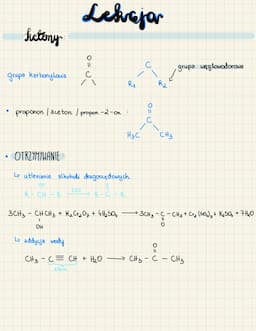 Lekcja
ketony
grupa karbonylowa
O
C
C
R₁ R₂
grupa węglowodorowa
• propanon / aceton / propan-2-on
O
C
H₃C CH₃
• OTRZYMYWANIE
↳ utlenianie alkoholi drugorzędowych
3CH₃ - CHCH₃ + K₂Cr₂O₇ + 4H₂SO₄ → 3CH₃ - C - CH₃ + Cr₂(SO₄)₃ + K₂SO₄ + 7H₂O
OH O
↳ addycja wody
CH₃ - C ≡ CH + H₂O → CH₃ - C - CH₃
O